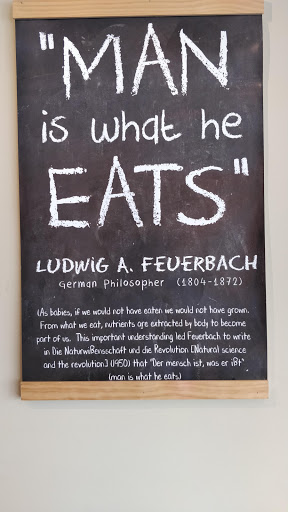 "MAN
is what he
EATS"
LUDWIG A. FEUERBACH
German Philosopher (1804-1872)
(As babies, if we would not have eaten we would not have grown.
From what we eat, nutrients are extracted by body to become
part of us. This important understanding led Feuerbach to write
in Die Naturwißenschaft und die Revolution [Natural science
and the revolution] (1950) that "Der mensch ist, was er ißt"
(man is what he eats)